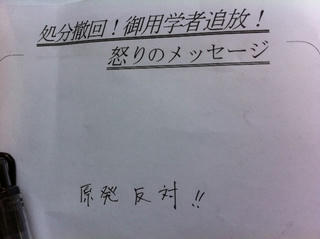 処分撤回！御用学者追放！
怒りのメッセージ
原発反対!!